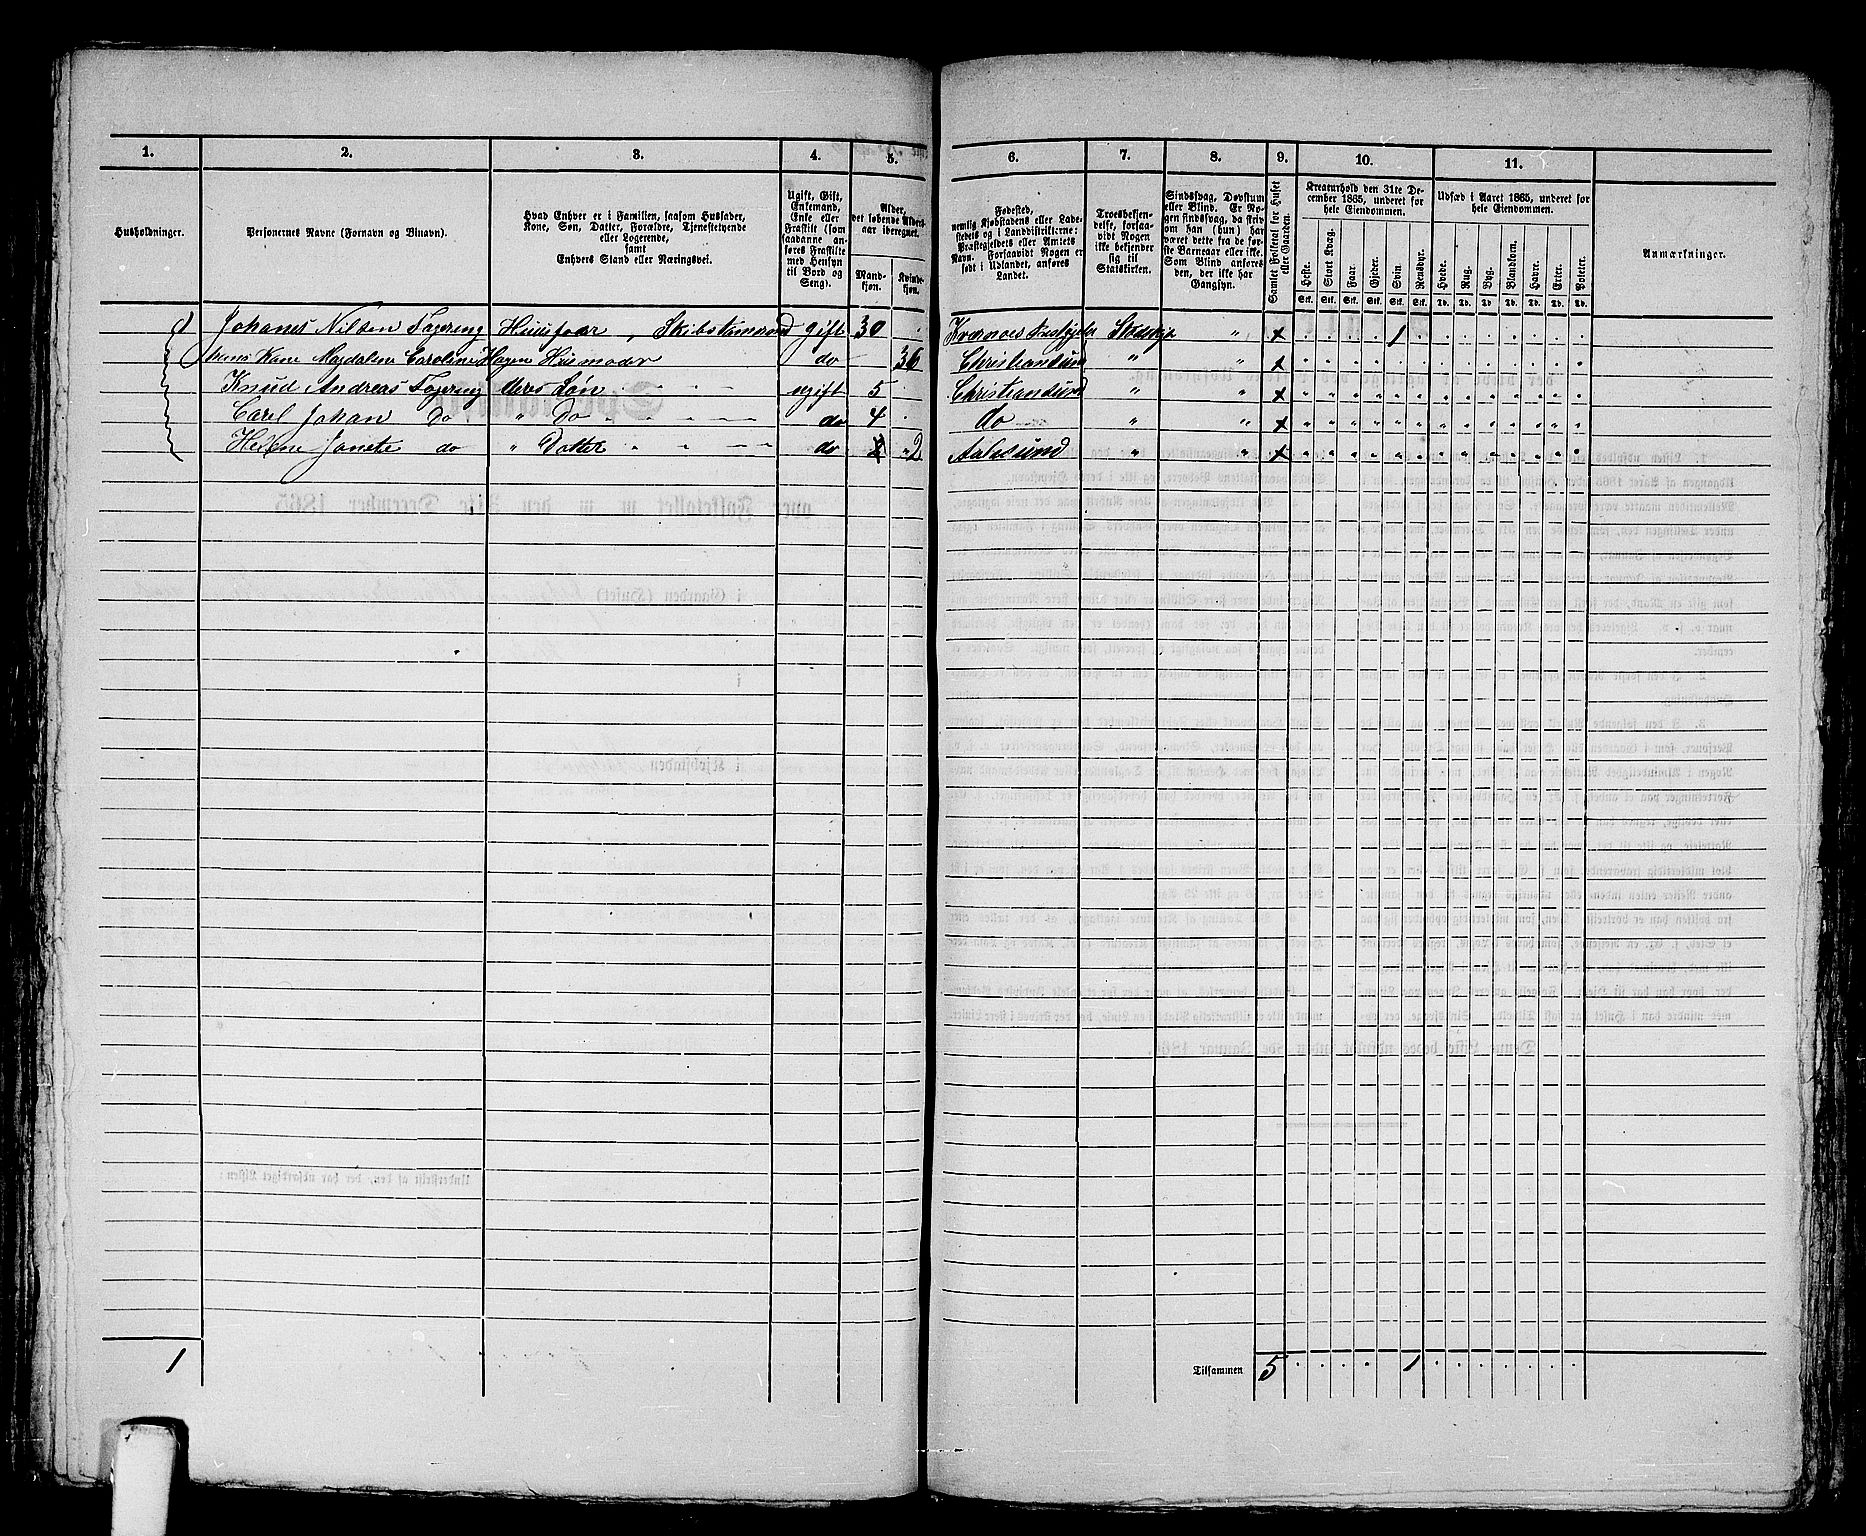 1. 2. 3. 4. 5. 6. 7. 8. 9. 10. 11.
Husholdninger.
Personernes Navne (Fornavn og Binavn).
Hvad Enhver er i Familien, saasom Husfader,
Kone, Søn, Datter, Forældre, Tjenestetyende
eller Logerende,
samt
Enhvers Stand eller Næringsvei.
Ugift, Gift,
Enkemand,
Enke eller
Fraskilt (som
saadanne an-
føres Fraskilte
med Hensyn
til Bord og
Seng).
Alder,
det løbende Alders-
aar iberegnet.
Mand-
kjøn.
Kvinde-
kjøn.
Fødested,
nemlig Kjøbstadens eller Lade-
stedets og i Landdistrikterne:
Præstegjeldets eller Amtets
Navn. Forsaavidt Nogen er
født i Udlandet, anføres
Landet.
Troesbekjen-
delse, forsaa-
vidt Nogen
ikke bekjender
sig til
Statskirken.
Sindssvag, Døvstum
eller Blind. Er No-
gen sindssvag, da skriv
om han (hun) har
været dette fra de før-
ste Barneaar eller ikke.
Som Blind anføres
den, der ikke har
Gangsyn.
Samlet Folketal for Huset
eller Gaarden.
Kreaturhold den 31te De-
cember 1865, underet for
hele Eiendommen.
Heste. Stort Kvæg. Faar. Gjeder. Svin. Rensdyr.
Stk. Stk. Stk. Stk. Stk. Stk.
Udsæd i Aaret 1865, underet for
hele Eiendommen.
Hvede. Rug. Byg. Blandkorn. Havre. Erter. Poteter.
Td. Td. Td. Td. Td. Td. Td.
Anmærkninger.
Johanes Nilsen Fagereng Huusfaar, Skibstømmd gift 30 Kværnæs 1
hans Kone Magdalene Caroline Hagen Husmoder do 36 Christiansund "
Knud Andreas Fagereng deres Søn ugift 5 Christiansund "
Carl Johan Do " Do do 4 do "
Janete do " Datter do 2 Aalesund "
1 Tilsammen 5 1